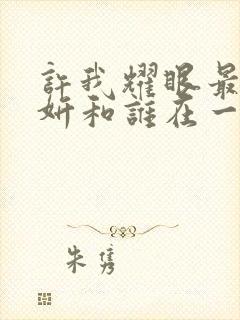 許我耀眼最
妍和誰在一
朱雋